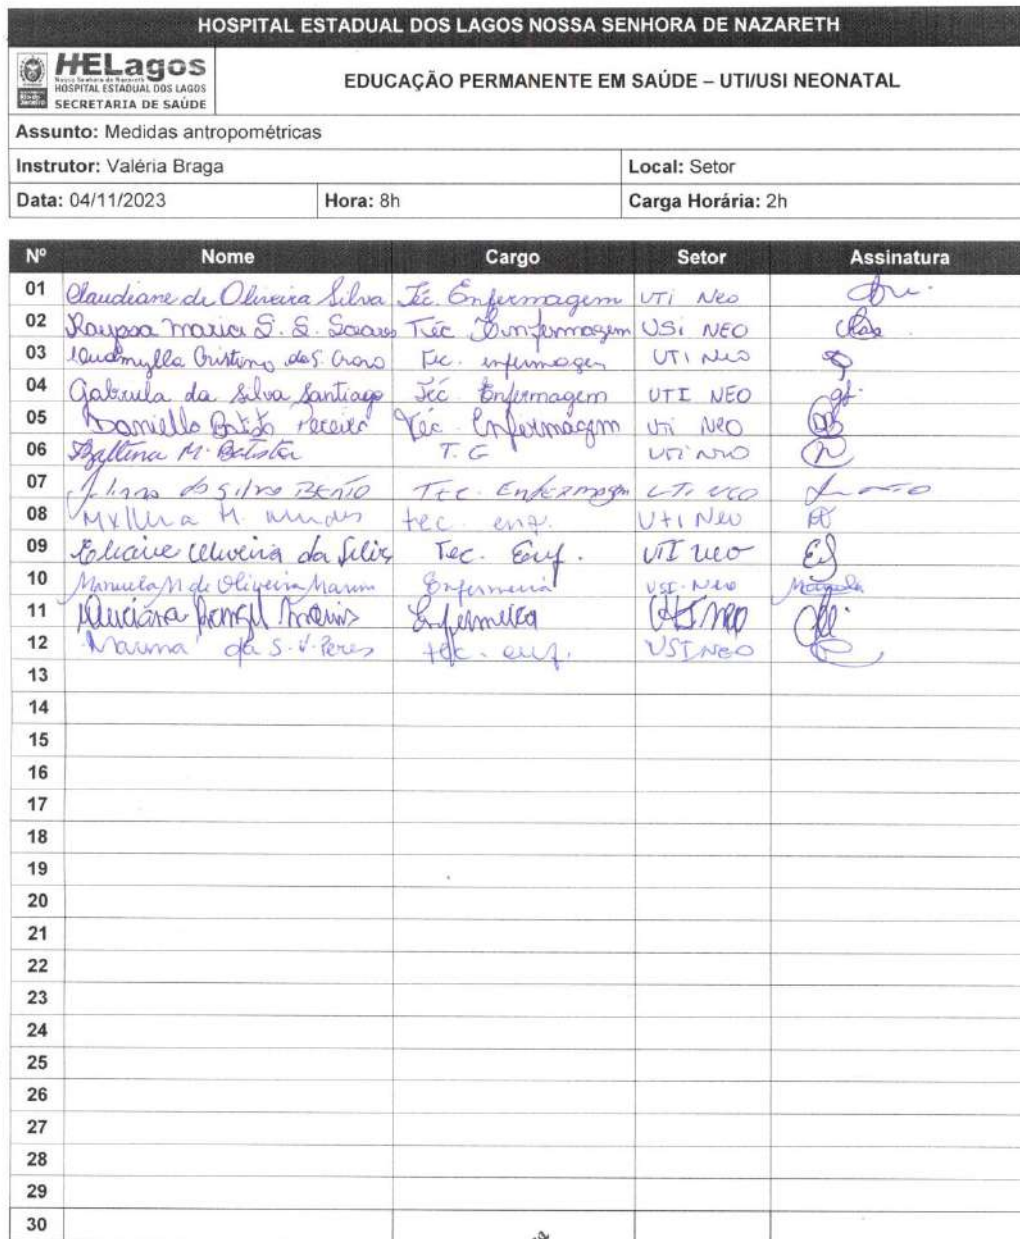 HOSPITAL ESTADUAL DOS LAGOS NOSSA SENHORA DE NAZARETH
HELagos
Nossa Senhora de Nazareth
HOSPITAL ESTADUAL DOS LAGOS
SECRETARIA DE SAÚDE
EDUCAÇÃO PERMANENTE EM SAÚDE – UTI/USI NEONATAL
Assunto: Medidas antropométricas
Instrutor: Valéria Braga Local: Setor
Data: 04/11/2023 Hora: 8h Carga Horária: 2h
Nº Nome Cargo Setor Assinatura
01 Claudiane de Oliveira Silva Téc. Enfermagem UTI Neo
02 Rayssa Maria S. S. Soares Téc Enfermagem USI NEO
03 Cristino da S. Tec. enfermagem UTI Neo
04 Gabriela da Silva Santiago Téc Enfermagem UTI NEO
05 Danielle Pereira Téc Enfermagem Uti Neo
06 M. Batista T. UTI NEO
07 da Silva BENTO TEC. Enfermagem UTI NEO
08 M. tec. enf. UTI Neo
09 Eliane Oliveira da Silva Tec. Enf. UTI neo
10 Manuela M de Oliveira Marin Enfermeira USI-Neo Manuela
11 Luciana Enfermeira NEO
12 Marina da S. V. Peres tec. enf. USI NEO
13
14
15
16
17
18
19
20
21
22
23
24
25
26
27
28
29
30